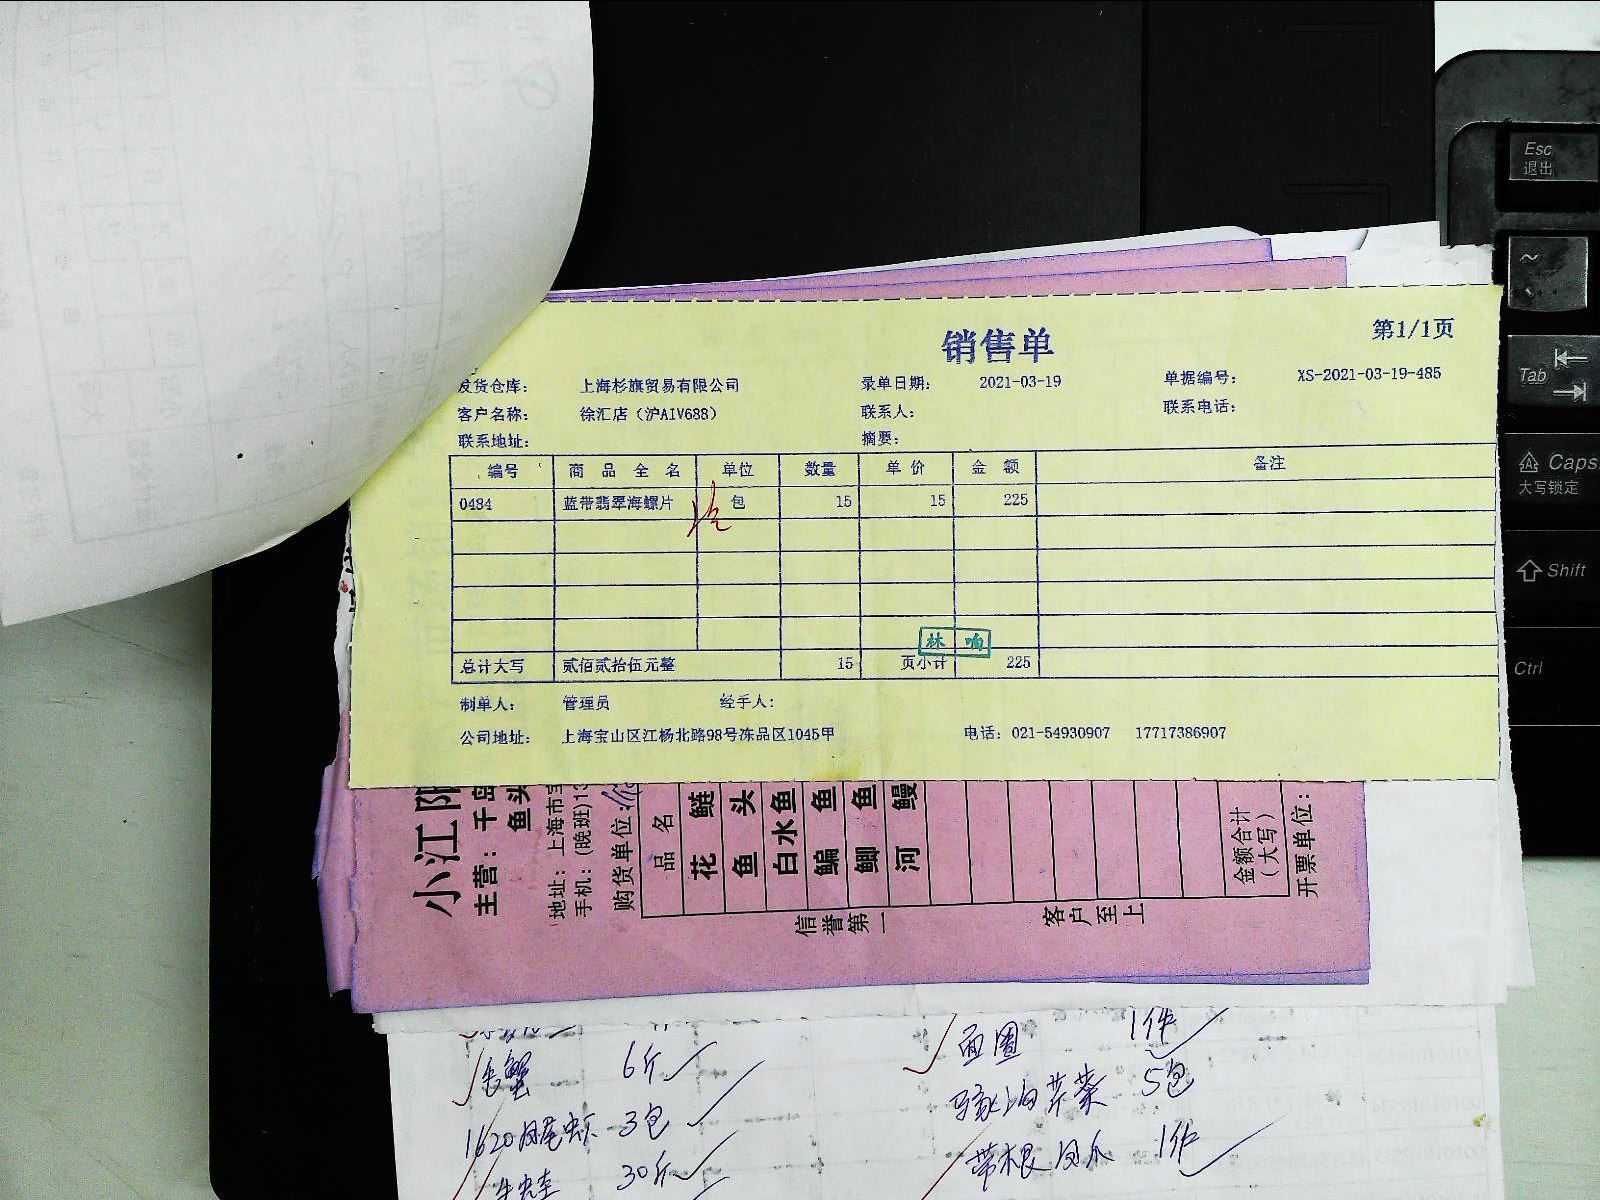 销售单
第1/1页
发货仓库： 上海杉旗贸易有限公司 录单日期： 2021-03-19 单据编号： XS-2021-03-19-485
客户名称： 徐汇店（沪AIV688） 联系人： 联系电话：
联系地址： 摘要：
编号 商品全名 单位 数量 单价 金额 备注
0484 蓝带翡翠海螺片 包 15 15 225
林 响
总计大写 贰佰贰拾伍元整 15 页小计 225
制单人： 管理员 经手人：
公司地址： 上海宝山区江杨北路98号冻品区1045甲 电话：021-54930907 17717386907
小江阳
主营：千岛
鱼头
地址：上海市宝
手机：(晚班)13
购货单位：
品名
花鲢
鱼头
白水鱼
鳊鱼
鲫鱼
河鳗
金额合计
（大写）
开票单位：
信誉第一
客户至上
6斤
面圈 1件
1620凤尾虾 3包
5包
30斤
带根凤爪 1件
Esc
退出
~
Tab
Caps
大写锁定
Shift
Ctrl